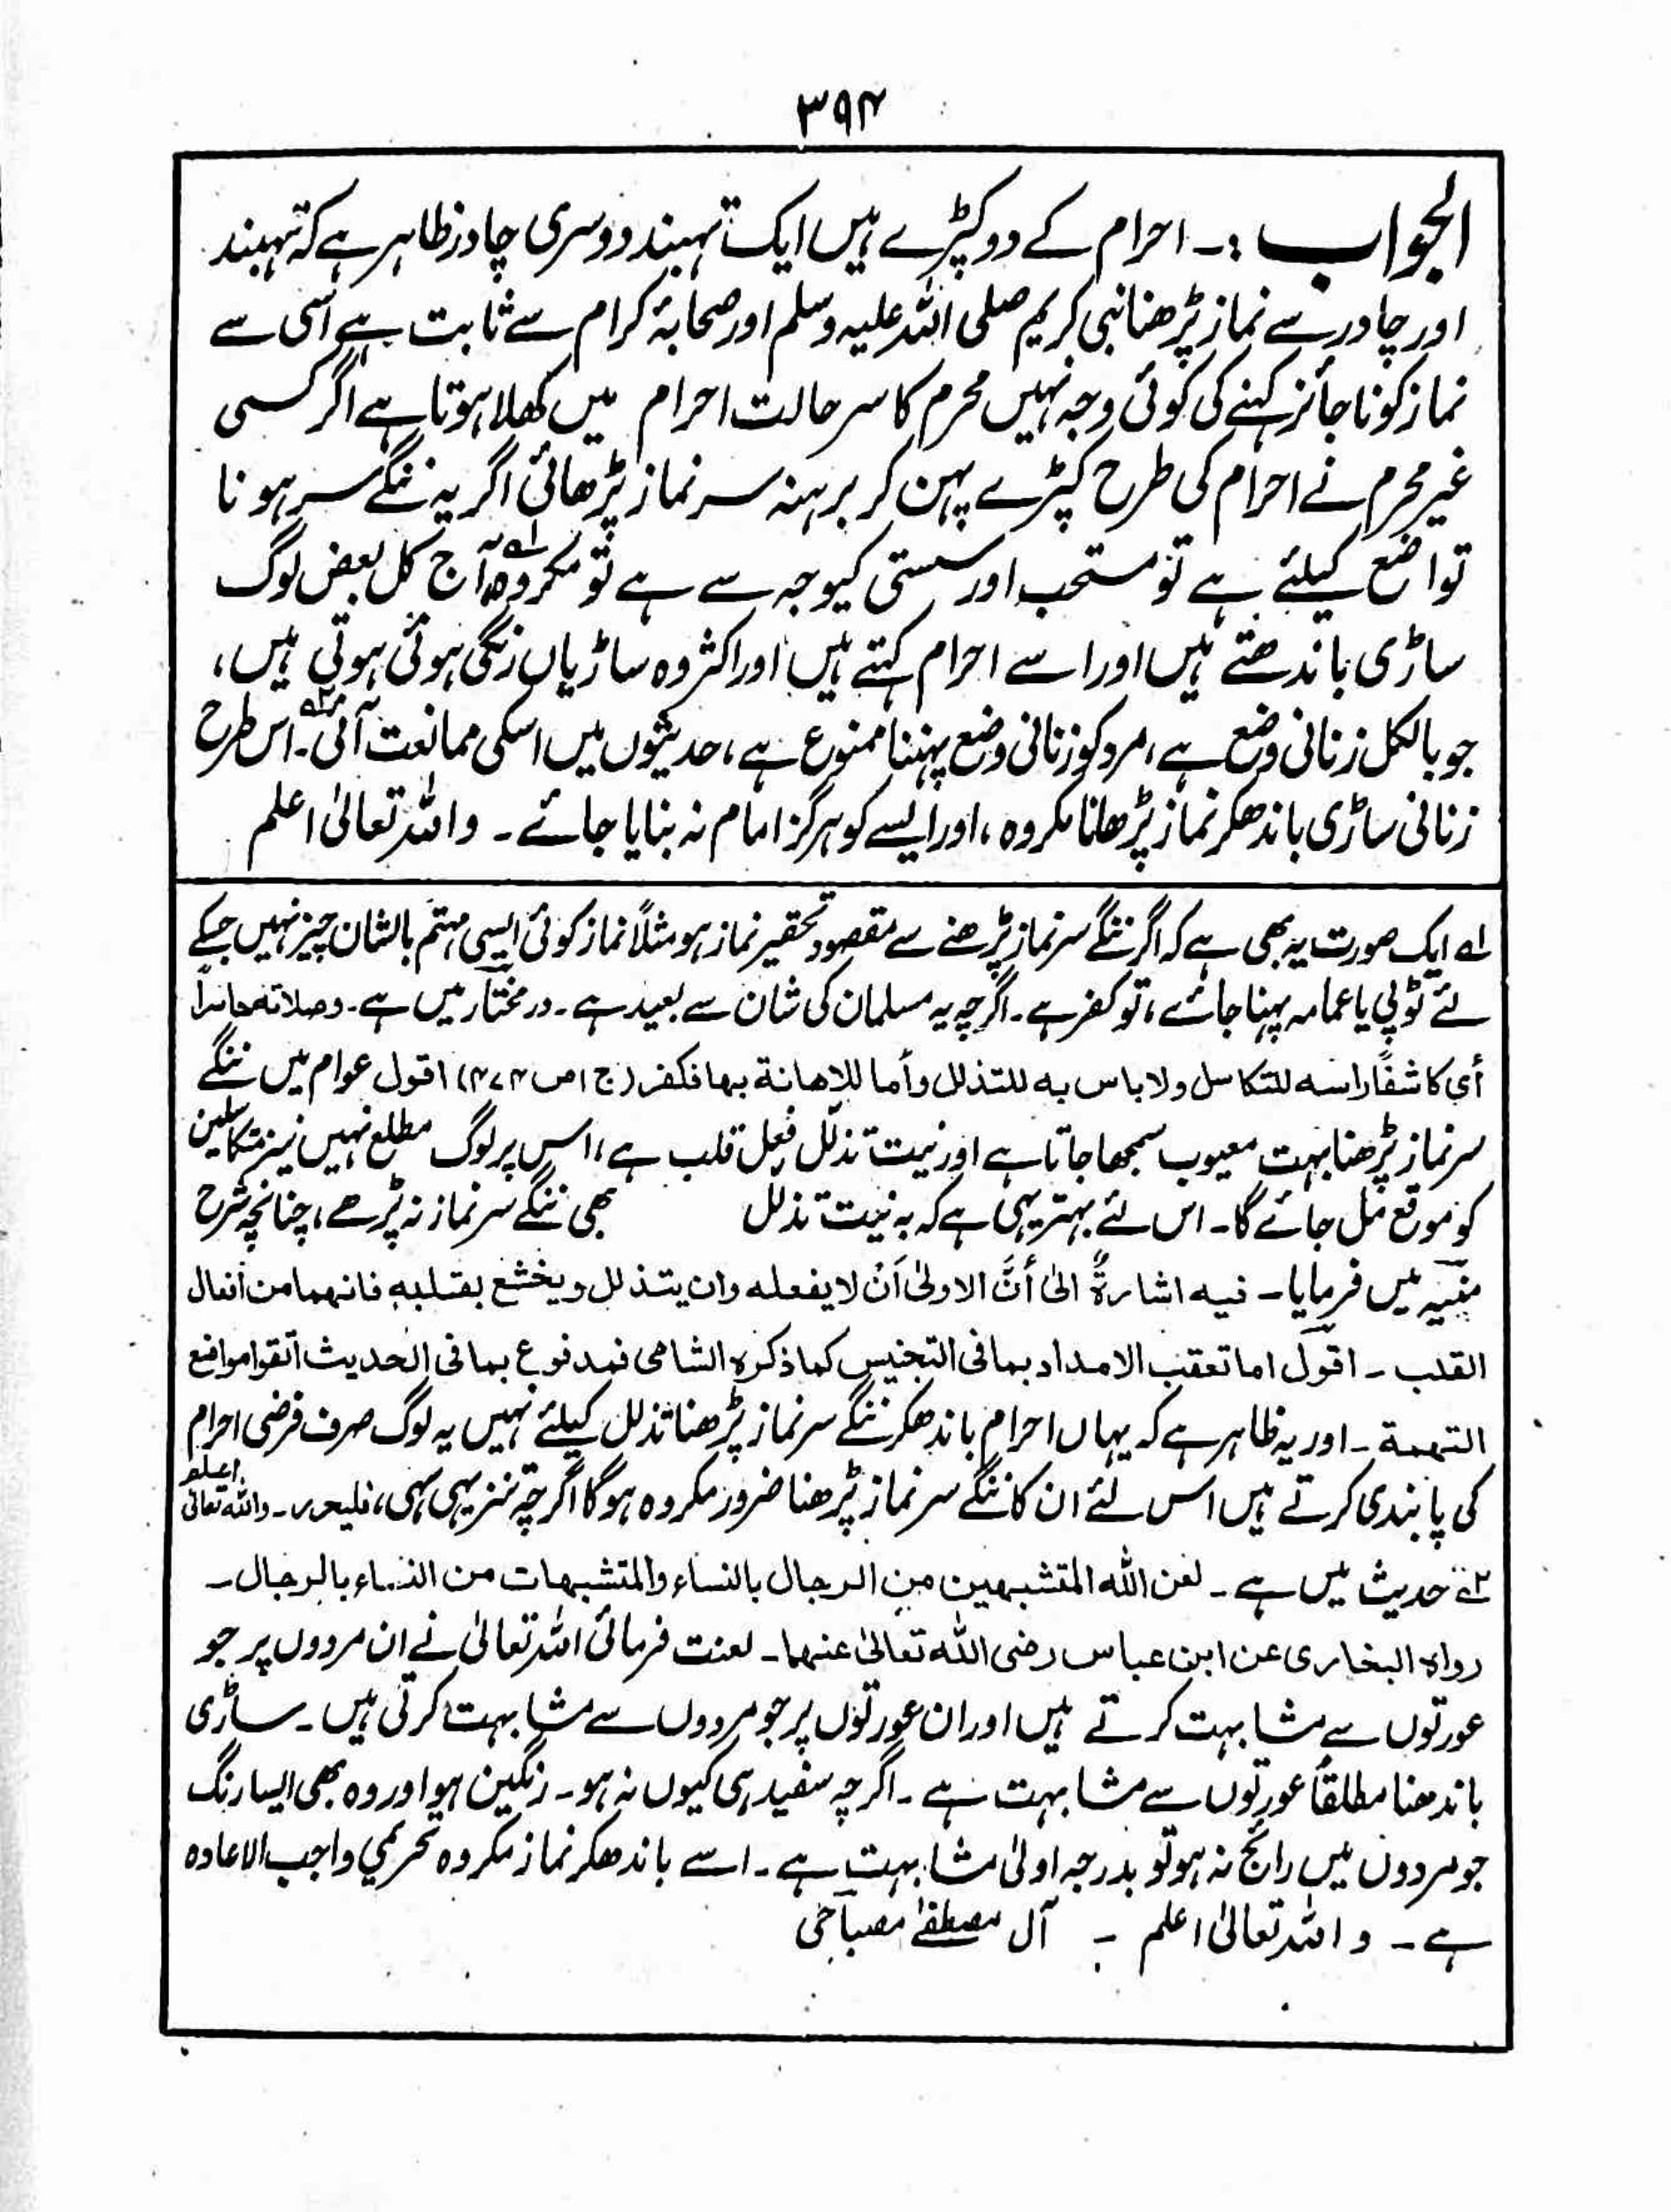 ۳۹۴
الجواب :۔ احرام کے دو کپڑے ہیں ایک تہبند دوسری چادر ظاہر ہے کہ تہبند
اور چادر سے نماز پڑھنا نبی کریم صلی اللہ علیہ وسلم اور صحابۂ کرام سے ثابت ہے اسی سے
نماز کو ناجائز کہنے کی کوئی وجہ نہیں محرم کا سر حالت احرام میں کھلا ہوتا ہے اگر کسی
غیر محرم نے احرام کی طرح کپڑے پہن کر برہنہ سر نماز پڑھائی اگر یہ ننگے سر ہونا
تواضع کیلئے ہے تو مستحب اور سستی کیوجہ سے ہے تو مکروہ ۱ے آج کل بعض لوگ
ساڑی باندھتے ہیں اور اسے احرام کہتے ہیں اور اکثر وہ ساڑیاں رنگی ہوئی ہوتی ہیں،
جو بالکل زنانی وضع ہے، مرد کو زنانی وضع پہننا ممنوع ہے، حدیثوں میں اسکی ممانعت آئی ۲ے۔ اس طرح
زنانی ساڑی باندھکر نماز پڑھانا مکروہ، اور ایسے کو ہرگز امام نہ بنایا جائے۔ واللہ تعالیٰ اعلم
۱ے ایک صورت یہ بھی ہے کہ اگر ننگے سر نماز پڑھنے سے مقصود تحقیر نماز ہو مثلاً نماز کوئی ایسی مہتم بالشان چیز نہیں جسکے
لئے ٹوپی یا عمامہ پہنا جائے، تو کفر ہے۔ اگرچہ یہ مسلمان کی شان سے بعید ہے۔ درمختار میں ہے۔ وصلاتہ حاسراً
أی کاشفاً راسہ للتکاسل ولا باس بہ للتذلل وأما للاھانة بھا فکفر (ج ۱ ص ۴۷۴) اقول عوام میں ننگے
سر نماز پڑھنا بہت معیوب سمجھا جاتا ہے اور نیت تذلل فعل قلب ہے، اس پر لوگ مطلع نہیں نیز متکاسلین
کو موقع مل جائے گا۔ اس لئے بہتر یہی ہے کہ بہ نیت تذلل بھی ننگے سر نماز نہ پڑھے، چنانچہ شرح
منیہ میں فرمایا۔ فیہ اشارةٌ الیٰ أنَّ الاولیٰ اَنْ لا یفعلہ وان یتذلل ویخشع بقلبہ فانھما من أفعال
القلب ۔ اقول اما تعقب الامداد بما فی التجنیس کما ذکرہ الشامی فمدفوع بما فی الحدیث اتقوا مواضع
التھمة ۔ اور یہ ظاہر ہے کہ یہاں احرام باندھکر ننگے سر نماز پڑھنا تذلل کیلئے نہیں یہ لوگ صرف فرضی احرام
کی پابندی کرتے ہیں اس لئے ان کا ننگے سر نماز پڑھنا ضرور مکروہ ہوگا اگرچہ تنزیہی سہی، فلیحرر۔ واللہ تعالیٰ اعلم
۲ے حدیث میں ہے۔ لعن اللہ المتشبھین من الرجال بالنساء والمتشبھات من النساء بالرجال۔
رواہ البخاری عن ابن عباس رضی اللہ تعالیٰ عنہما۔ لعنت فرمائی اللہ تعالیٰ نے ان مردوں پر جو
عورتوں سے مشابہت کرتے ہیں اور ان عورتوں پر جو مردوں سے مشابہت کرتی ہیں۔ ساڑی
باندھنا مطلقاً عورتوں سے مشابہت ہے۔ اگرچہ سفید ہی کیوں نہ ہو۔ رنگین ہو اور وہ بھی ایسا رنگ
جو مردوں میں رائج نہ ہو تو بدرجہ اولیٰ مشابہت ہے۔ اسے باندھکر نماز مکروہ تحریمی واجب الاعادہ
ہے۔ واللہ تعالیٰ اعلم ۔ آل مصطفےٰ مصباحی